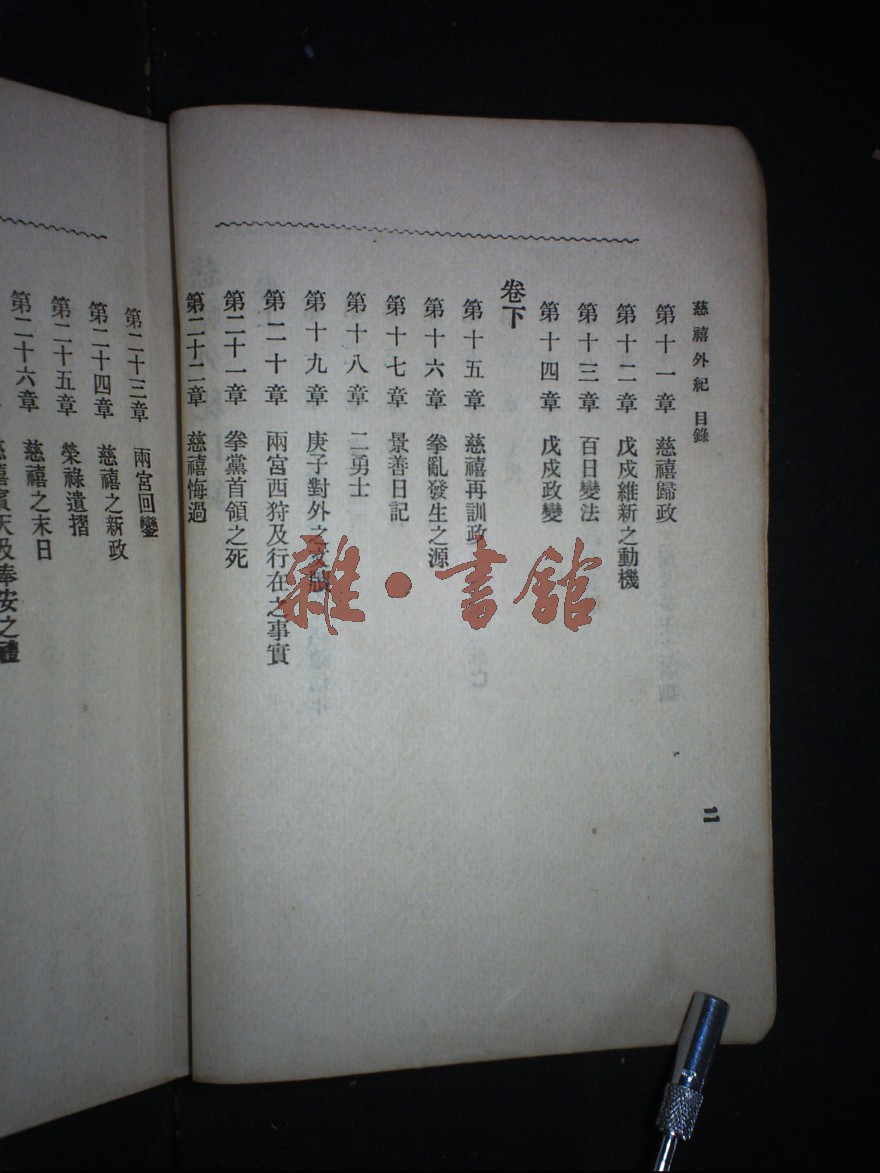 慈禧外紀 目錄
第十一章 慈禧歸政
第十二章 戊戌維新之動機
第十三章 百日變法
第十四章 戊戌政變
卷下
第十五章 慈禧再訓政
第十六章 拳亂發生之源
第十七章 景善日記
第十八章 二勇士
第十九章 庚子對外之文牘
第二十章 兩宮西狩及行在之事實
第二十一章 拳黨首領之死
第二十二章 慈禧悔過
二
第二十三章 兩宮回鑾
第二十四章 慈禧之新政
第二十五章 榮祿遺摺
第二十六章 慈禧之末日
慈禧賓天及奉安之禮
雜·書舘